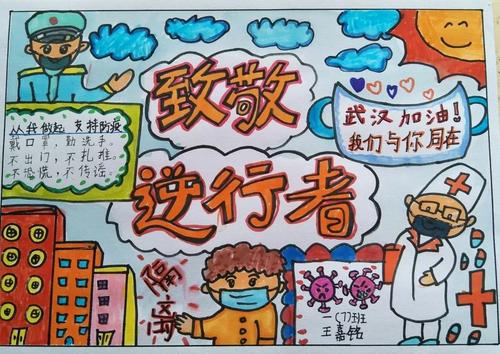 致敬
逆行者
武汉加油！
我们与你同在
从我做起 支持防疫
戴口罩，勤洗手。
不出门，不扎堆。
不恐慌，不传谣。
隔离
一(7)班
王嘉铭